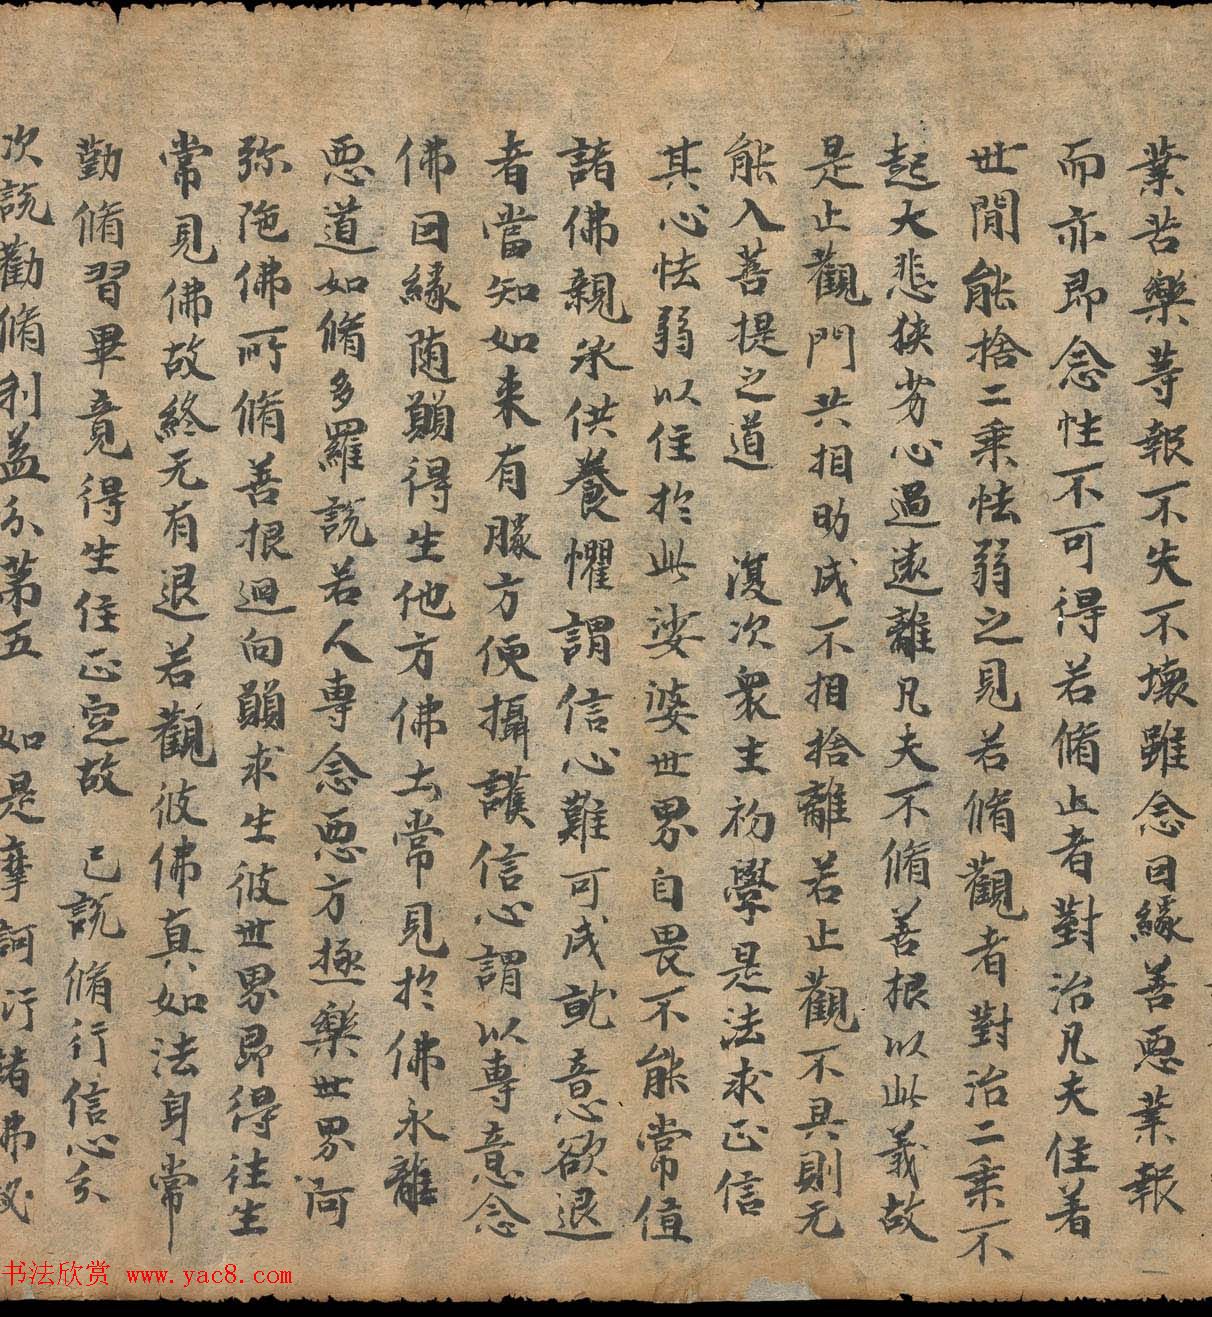 業苦樂等報不失不壞雖念因緣善惡業報
而亦即念性不可得若脩止者對治凡夫住著
世間能捨二乘怯弱之見若脩觀者對治二乘不
起大悲狹劣心過遠離凡夫不脩善根以此義故
是止觀門共相助成不相捨離若止觀不具則无
能入菩提之道 復次衆生初學是法求正信
其心怯弱以住於此娑婆世界自畏不能常值
諸佛親承供養懼謂信心難可成就意欲退
者當知如来有勝方便攝護信心謂以專意念
佛因緣随願得生他方佛土常見於佛永離
惡道如脩多羅說若人專念惡方極樂世界阿
弥陁佛所脩善根迴向願求生彼世界即得往生
常見佛故終无有退若觀彼佛真如法身常
勤脩習畢竟得生住正定故 已說脩行信心分
次說勸脩利益分第五 如是摩訶衍諸佛秘
书法欣赏 www.yac8.com